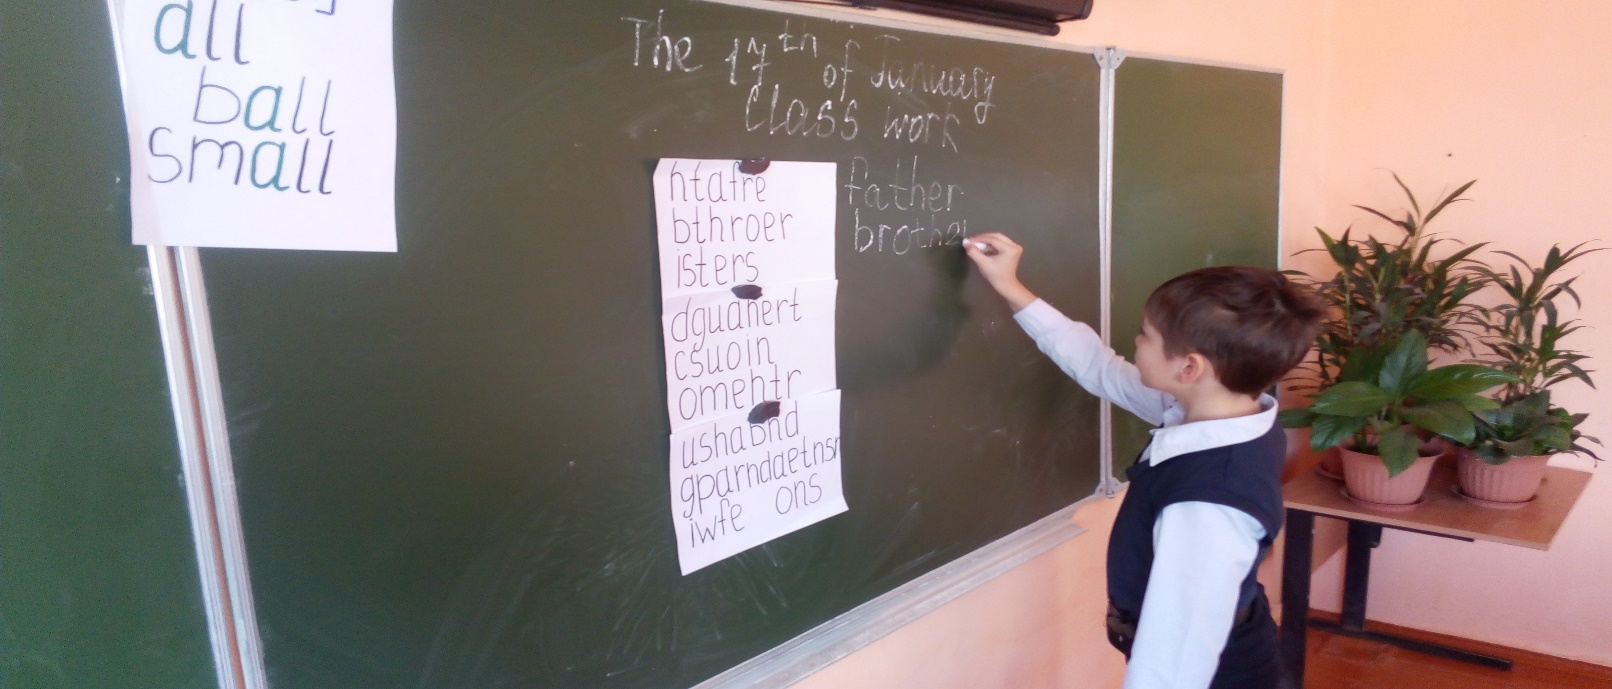 all
ball
small
The 17th of January
Class work
htafre
bthroer
isters
dguahert
csuoin
omehtr
ushabnd
gparndaetnsr
iwfe ons
father
brothe